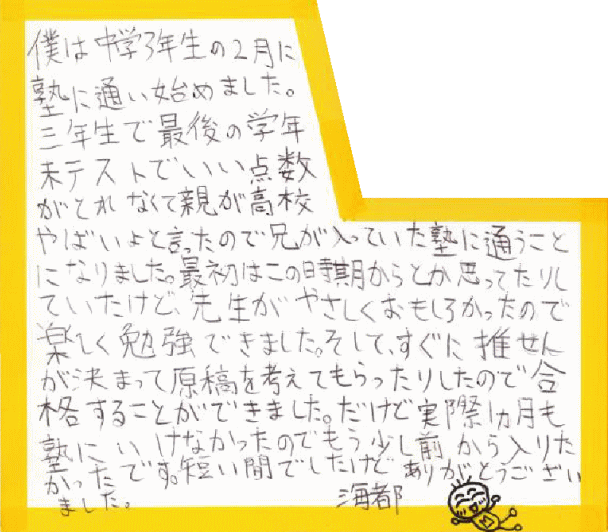 僕は中学3年生の2月に
塾に通い始めました。
三年生で最後の学年
末テストでいい点数
がとれなくて親が高校
やばいよと言ったので兄が入っていた塾に通うこと
になりました。最初はこの時期からとか思ってたりし
ていたけど、先生がやさしくおもしろかったので
楽しく勉強できました。そして、すぐに推せん
が決まって原稿を考えてもらったりしたので合
格することができました。だけど実際1ヵ月も
塾にいけなかったのでもう少し前から入りた
かったです。短い間でしたけどありがとうござい
ました。
海都